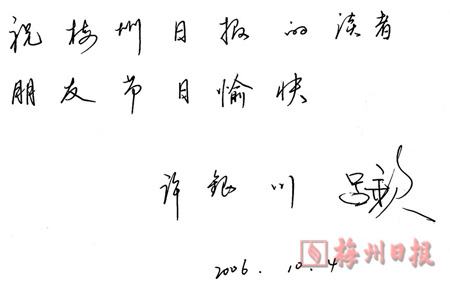 祝梅州日报的读者
朋友节日愉快
许银川 吕钦
梅州日报
2006.10.4